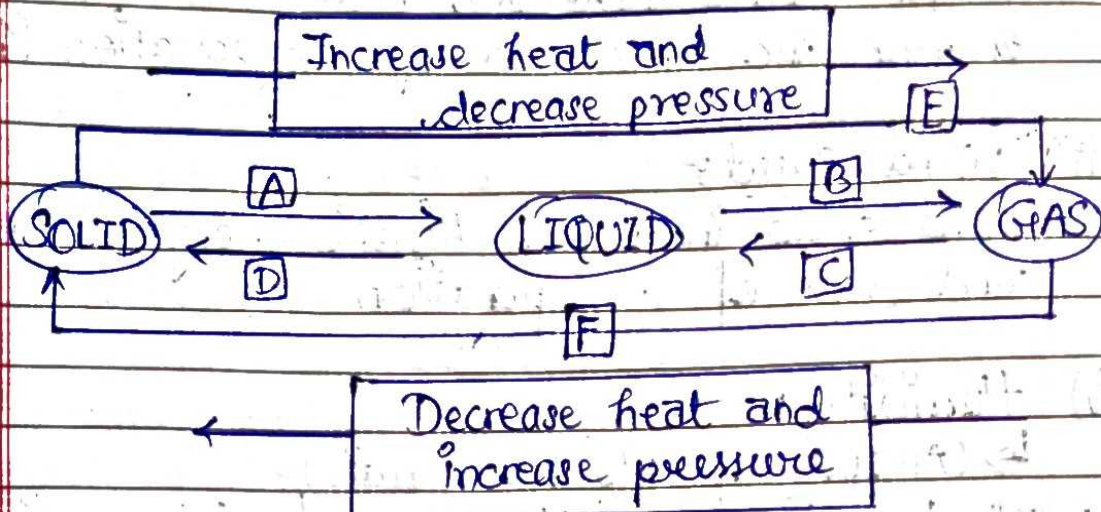 Increase heat and
decrease pressure
E
A
B
SOLID
LIQUID
GAS
D
C
F
Decrease heat and
increase pressure